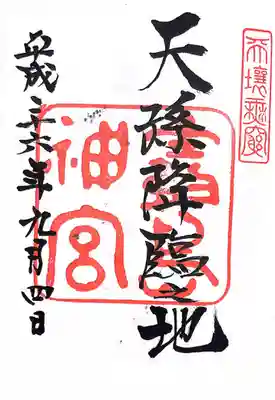 天壤無窮
天孫降臨之地
霧島
神宮
平成二十六年九月四日